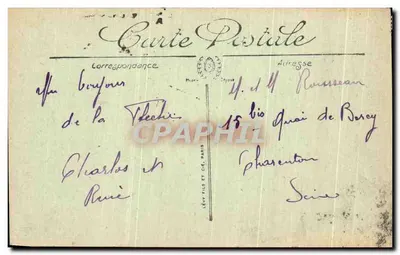 Carte Postale
Correspondance
Adresse
Un bonjour
de la Flèche
Charles et
M. et M Rousseau
15 bis Quai de Bercy
Charenton
Seine
LÉVY FILS ET CIE, PARIS
CPARAMA